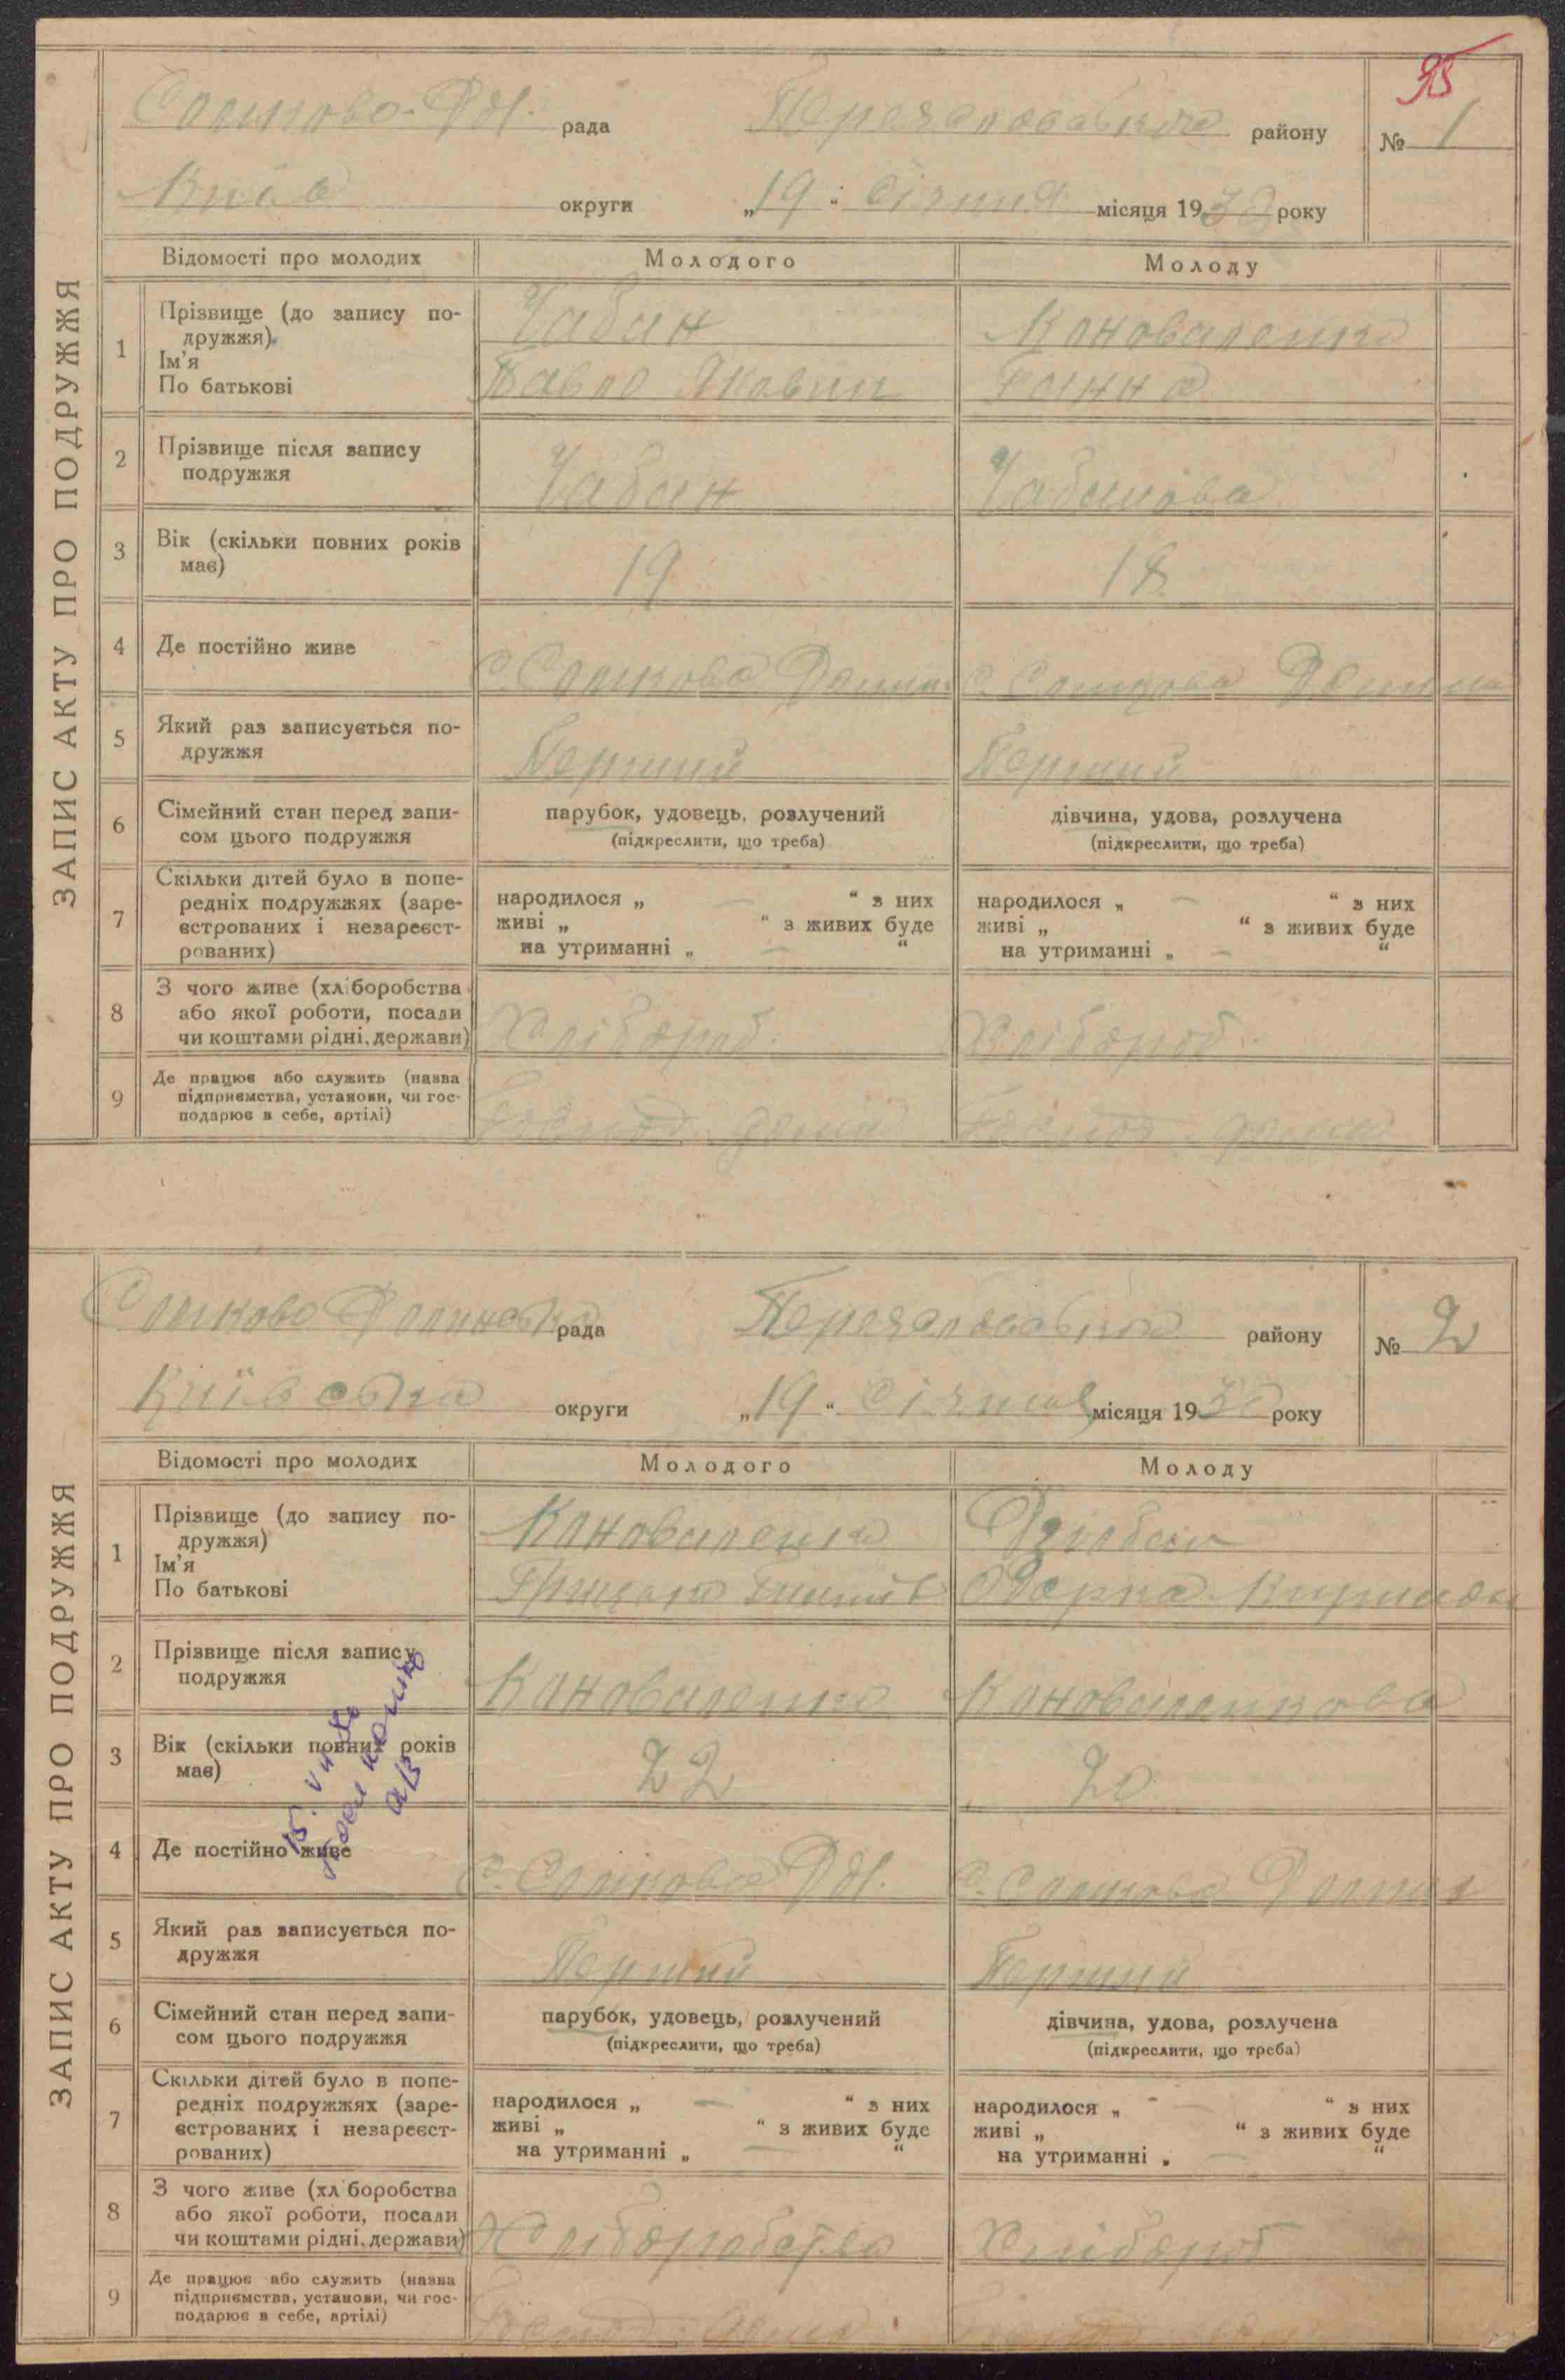 95
ЗАПИС АКТУ ПРО ПОДРУЖЖЯ
Сошково-Дол. рада Переяславського району № 1
Київ округи „19“ січня місяця 1930 року
Відомості про молодих Молодого Молоду
1 Прізвище (до запису по-
дружжя) Чабан Коноваленко
Ім'я
По батькові Павло Якович Ганна
2 Прізвище після запису
подружжя Чабан Чабанова
3 Вік (скільки повних років
має) 19 18
4 Де постійно живе с. Сошкова Долина с. Сошкова Долина
5 Який раз записується по-
дружжя Перший Перший
6 Сімейний стан перед запи-
сом цього подружжя парубок, удовець, розлучений дівчина, удова, розлучена
(підкреслити, що треба) (підкреслити, що треба)
7 Скільки дітей було в попе-
редніх подружжях (заре-
єстрованих і незареєст-
рованих) народилося „ — “ з них народилося „ — “ з них
живі „ “ з живих буде живі „ “ з живих буде
на утриманні „ — “ на утриманні „ — “
8 З чого живе (хліборобства
або якої роботи, посади
чи коштами рідні, держави) Хлібороб. Хлібороб.
9 Де працює або служить (назва
підприємства, установи, чи гос-
подарює в себе, артілі) Господ. дома Господ. дома
ЗАПИС АКТУ ПРО ПОДРУЖЖЯ
Сошково Долинська рада Переяславського району № 2
Київська округи „19“ січня місяця 1930 року
Відомості про молодих Молодого Молоду
1 Прізвище (до запису по-
дружжя) Коноваленко
Ім'я
По батькові Грицько Одарка
2 Прізвище після запису
подружжя Коноваленко Коноваленкова
3 Вік (скільки повних років
має) 22 20
4 Де постійно живе с. Сошкова Дол. с. Сошкова Долина
5 Який раз записується по-
дружжя Перший Перший
6 Сімейний стан перед запи-
сом цього подружжя парубок, удовець, розлучений дівчина, удова, розлучена
(підкреслити, що треба) (підкреслити, що треба)
7 Скільки дітей було в попе-
редніх подружжях (заре-
єстрованих і незареєст-
рованих) народилося „ — “ з них народилося „ — “ з них
живі „ “ з живих буде живі „ “ з живих буде
на утриманні „ — “ на утриманні „ — “
8 З чого живе (хліборобства
або якої роботи, посади
чи коштами рідні, держави) Хліборобство Хлібороб
9 Де працює або служить (назва
підприємства, установи, чи гос-
подарює в себе, артілі) Господ. дома